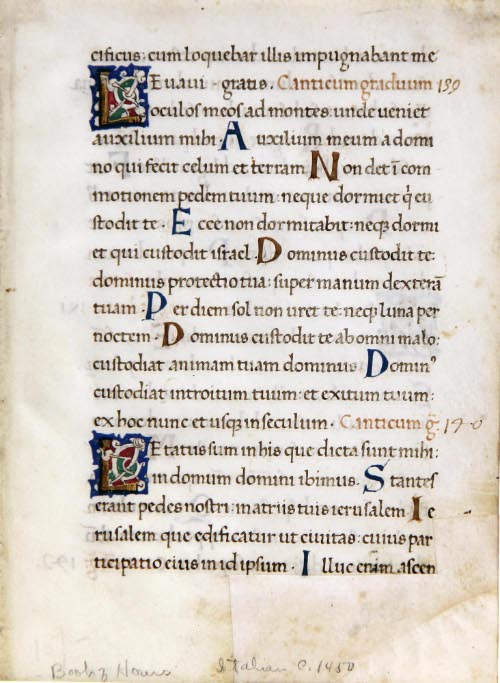 cificus: cum loquebar illis impugnabant me
LEuaui · gratis. Canticum graduum 139
oculos meos ad montes: unde ueniet
auxilium mihi. Auxilium meum a domi
no qui fecit celum et terram Non det ī com
motionem pedem tuum: neque dormiet q̇ cu
stodit te · Ecce non dormitabit: neqȝ dormi
et qui custodit israel. Dominus custodit te:
dominus protectio tua: super manum dexterā
tuam · Per diem sol non uret te: neqȝ luna per
noctem · Dominus custodit te ab omni malo:
custodiat animam tuam dominus Dominꝰ
custodiat introitum tuum: et exitum tuum:
ex hoc nunc et usqȝ in seculum. Canticum g̃. 140
LEtatus sum in his que dicta sunt mihi:
in domum domini ibimus. Stantes
erant pedes nostri: in atriis tuis ierusalem Ie
rusalem que edificatur ut ciuitas: cuius par
ticipatio eius in id ipsum · Illuc enim ascen
Book of Hours Italian c. 1450